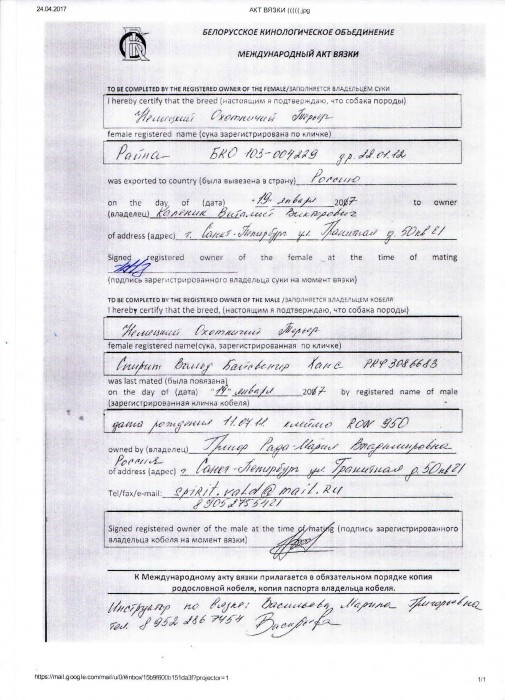 24.04.2017 АКТ ВЯЗКИ (((((.jpg
БЕЛОРУССКОЕ КИНОЛОГИЧЕСКОЕ ОБЪЕДИНЕНИЕ
МЕЖДУНАРОДНЫЙ АКТ ВЯЗКИ
TO BE COMPLETED BY THE REGISTERED OWNER OF THE FEMALE/ЗАПОЛНЯЕТСЯ ВЛАДЕЛЬЦЕМ СУКИ
I hereby certify that the breed (настоящим я подтверждаю, что собака породы)
Немецкий Охотничий Терьер
female registered name (сука зарегистрирована по кличке)
Райна БКО 103-004229 др. 22.01.12
was exported to country (была вывезена в страну) Россию
on the day of (дата) "19" января 2017 to owner
(владелец) Каленик Виталий Викторович
of address (адрес) г. Санкт-Петербург ул Гранитная д. 50 кв 21
Signed registered owner of the female at the time of mating
(подпись зарегистрированного владельца суки на момент вязки)
TO BE COMPLETED BY THE REGISTERED OWNER OF THE MALE /ЗАПОЛНЯЕТСЯ ВЛАДЕЛЬЦЕМ КОБЕЛЯ
I hereby certify that the breed, (настоящим я подтверждаю, что собака породы)
Немецкий Охотничий Терьер
female registered name(сука, зарегистрированная по кличке)
Спирит Ханс РКФ 3086683
was last mated (была повязана)
on the day of (дата) "19" января 2017 by registered name of male
(зарегистрированная кличка кобеля)
дата рождения 11.04.11 клеймо RON 950
owned by (владелец) Приор Рада-Мария Владимировна
Россия
of address (адрес) г. Санкт-Петербург ул Гранитная д. 50 кв 21
Tel/fax/e-mail: spirit.vald@mail.ru
89052755421
Signed registered owner of the male at the time of mating (подпись зарегистрированного
владельца кобеля на момент вязки)
К Международному акту вязки прилагается в обязательном порядке копия
родословной кобеля, копия паспорта владельца кобеля.
Инструктор по вязке: Васильева Марина Григорьевна
тел. 8 952 236 7454
https://mail.google.com/mail/u/0/#inbox/15b9f900b151da3f?projector=1 1/1